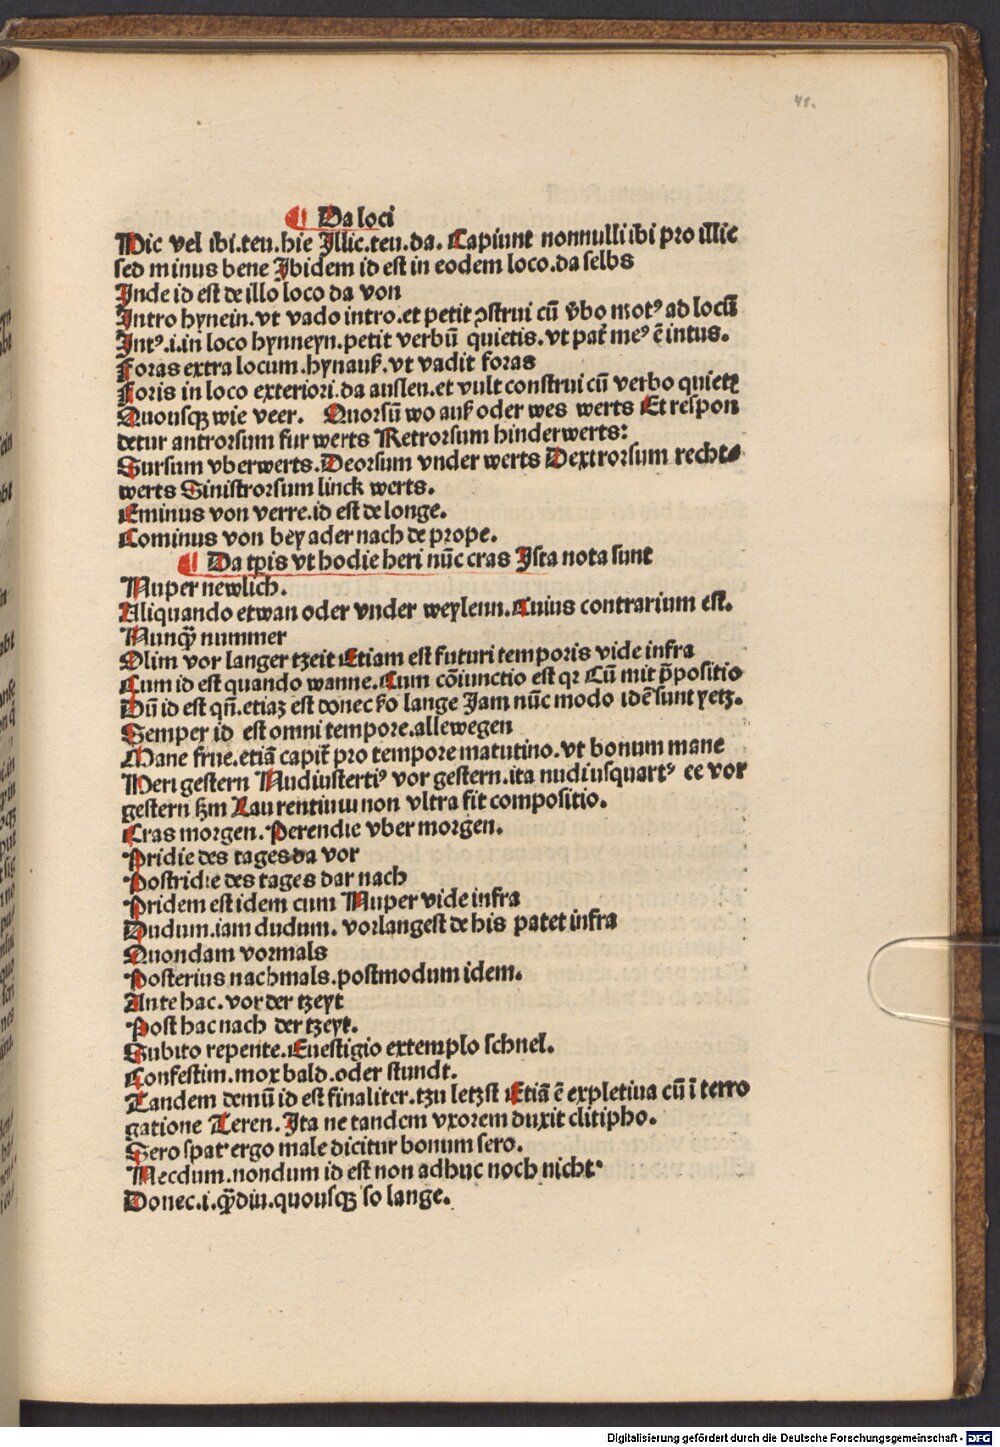 41.
¶ Da loci
Hic vel ibi.teu.hie Illic.teu.da. Capiunt nonnulli ibi pro illic
sed minus bene Ibidem id est in eodem loco.da selbs
Inde id est de illo loco da von
Intro hynein.vt vado intro.et petit ↄstrui cū v̄bo motꝰ ad locū
Intꝰ.i.in loco hynneyn.petit verbū quietis.vt pat̄ meꝰ ē intus.
Foras extra locum.hynauß.vt vadit foras
Foris in loco exteriori.da auslen.et vult construi cū verbo quietꝭ
Quousqꝫ wie veer. Quorsū wo auß oder wes werts Et respon
detur antrorsum fur werts Retrorsum hinderwerts:
Sursum vberwerts.Deorsum vnder werts Dextrorsum recht
werts Sinistrorsum linck werts.
Eminus von verre.id est de longe.
Cominus von bey ader nach de prope.
¶ Da tp̄is vt hodie heri nūc cras Ista nota sunt
Nuper newlich.
Aliquando etwan oder vnder weylenn.Cuius contrarium est.
Nunqꝫ̄ nummer
Olim vor langer tzeit Etiam est futuri temporis vide infra
Cum id est quando wanne.Cum cōiunctio est qꝛ Cū mit p̄positio
Dū id est qn̄.etiaꝫ est donec ßo lange Jam nūc modo idē sunt yetz.
Semper id est omni tempore.allewegen
Mane frue.etiā capit̄ pro tempore matutino.vt bonum mane
Heri gestern Nudiustertiꝰ vor gestern.ita nudiusquartꝰ ee vor
gestern ẜm Laurentiuu non vltra fit compositio.
Cras morgen.Perendie vber morgen.
Pridie des tages da vor
Postridie des tages dar nach
Pridem est idem cum Nuper vide infra
Dudum.iam dudum. vorlangest de his patet infra
Quondam vormals
Posterius nachmals.postmodum idem.
Ante hac.vor der tzeyt
Post hac nach der tzeyt.
Subito repente.Euestigio extemplo schnel.
Confestim.mox bald.oder stundt.
Tandem demū id est finaliter.tzu letzst Etiā ē expletiua cū ī terro
gatione Teren.Ita ne tandem vxorem duxit clitipho.
Sero spatꝰ ergo male dicitur bonum sero.
Necdum.nondum id est non adhuc noch nicht
Donec.i.qꝫ̄diu.quousqꝫ so lange.
Digitalisierung gefördert durch die Deutsche Forschungsgemeinschaft - DFG